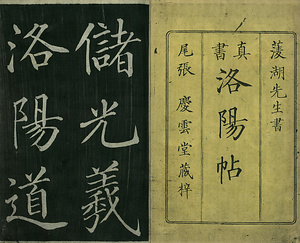 菱湖先生書
真書
洛陽帖
尾張 慶雲堂藏梓
儲光羲
洛陽道